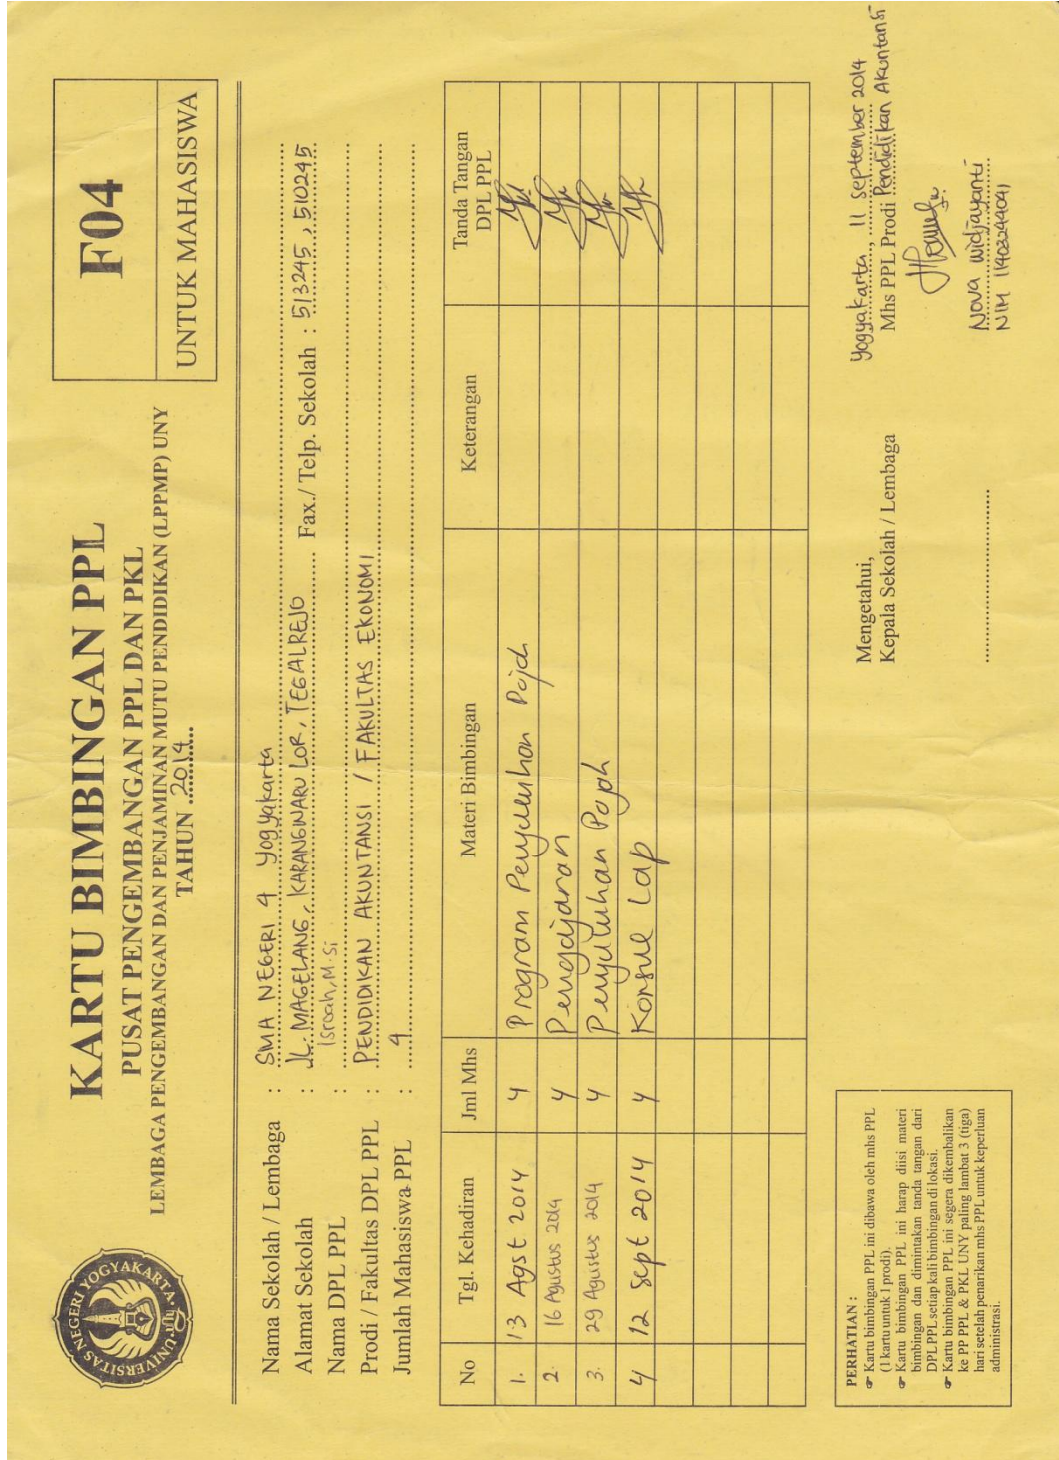 UNIVERSITAS NEGERI YOGYAKARTA
KARTU BIMBINGAN PPL
PUSAT PENGEMBANGAN PPL DAN PKL
LEMBAGA PENGEMBANGAN DAN PENJAMINAN MUTU PENDIDIKAN (LPPMP) UNY
TAHUN 2014
F04
UNTUK MAHASISWA
Nama Sekolah / Lembaga : SMA NEGERI 4 Yogyakarta
Alamat Sekolah : JL. MAGELANG, KARANGWARU LOR, TEGALREJO Fax./ Telp. Sekolah : 513245, 510245
Nama DPL PPL : Isroah, M.Si
Prodi / Fakultas DPL PPL : PENDIDIKAN AKUNTANSI / FAKULTAS EKONOMI
Jumlah Mahasiswa PPL : 4
No Tgl. Kehadiran Jml Mhs Materi Bimbingan Keterangan Tanda Tangan DPL PPL
1. 13 Agst 2014 4 Program Penyuluhan Pajak
2. 16 Agustus 2014 4 Pengajaran
3. 29 Agustus 2014 4 Penyuluhan Pajak
4 12 Sept 2014 4 Konsul Lap
PERHATIAN :
☞ Kartu bimbingan PPL ini dibawa oleh mhs PPL
(1 kartu untuk 1 prodi).
☞ Kartu bimbingan PPL ini harap diisi materi
bimbingan dan dimintakan tanda tangan dari
DPL PPL setiap kali bimbingan di lokasi.
☞ Kartu bimbingan PPL ini segera dikembalikan
ke PP PPL & PKL UNY paling lambat 3 (tiga)
hari setelah penarikan mhs PPL untuk keperluan
administrasi.
Mengetahui,
Kepala Sekolah / Lembaga
Yogyakarta, 11 September 2014
Mhs PPL Prodi Pendidikan Akuntansi
Nova Widjayanti
NIM 11403244041